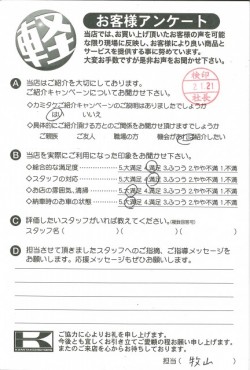 軽
お客様アンケート
当店では、お買い上げ頂いたお客様の声を可能
な限り現場に反映し、お客様により良い商品と
サービスを提供する事に努めています。
大変お手数ですが是非お声をお聞かせ下さい。
検印
2.1.21
社長
A 当店はご紹介を大切にしております。
ご紹介キャンペーンについてお聞かせ下さい。
◇カミタケご紹介キャンペーンのご説明はありましたでしょうか
はい いいえ
◇具体的にご紹介頂ける方とのご関係をお聞かせ下さい
ご親族 ご友人 職場の方 機会があればご紹介したい
B 当店を実際にご利用になった印象をお聞かせ下さい。
◇総合的な満足度 5.大満足 4.満足 3.ふつう 2.やや不満 1.不満
◇スタッフの対応 5.大満足 4.満足 3.ふつう 2.やや不満 1.不満
◇お店の雰囲気、清掃 5.大満足 4.満足 3.ふつう 2.やや不満 1.不満
◇納車時のお車の状態 5.大満足 4.満足 3.ふつう 2.やや不満 1.不満
C 評価したいスタッフがいれば教えてください。(複数回答可)
スタッフ名( )( )( )
D 担当させて頂きましたスタッフへのご指摘、ご指導メッセージを
お願いします。応援メッセージもぜひお願いします。
K
ご協力に心よりお礼を申し上げます。
今後とも宜しくお引き立てご愛顧の程お願い申し上げます。
またのご来店を心からお待ちしております。
担当( 牧山 )